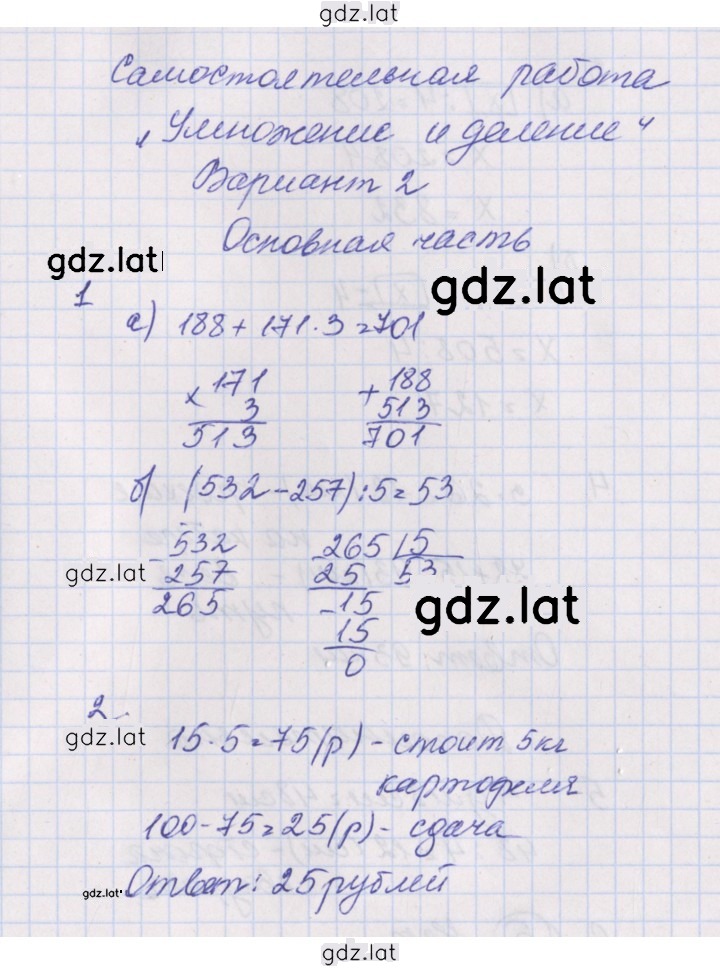 gdz.lat
Самостоятельная работа
„Умножение и деление“
Вариант 2
Основная часть
gdz.lat
gdz.lat
1
а) 188 + 171 · 3 = 701
× 171
3
513
+ 188
513
701
б) (532 - 257) : 5 = 53
- 532
257
265
265 | 5
25 53
- 15
15
0
gdz.lat
gdz.lat
2.
gdz.lat
15 · 5 = 75 (р) - стоит 5 кг
картофеля
100 - 75 = 25 (р) - сдача
gdz.lat
Ответ: 25 рублей
gdz.lat